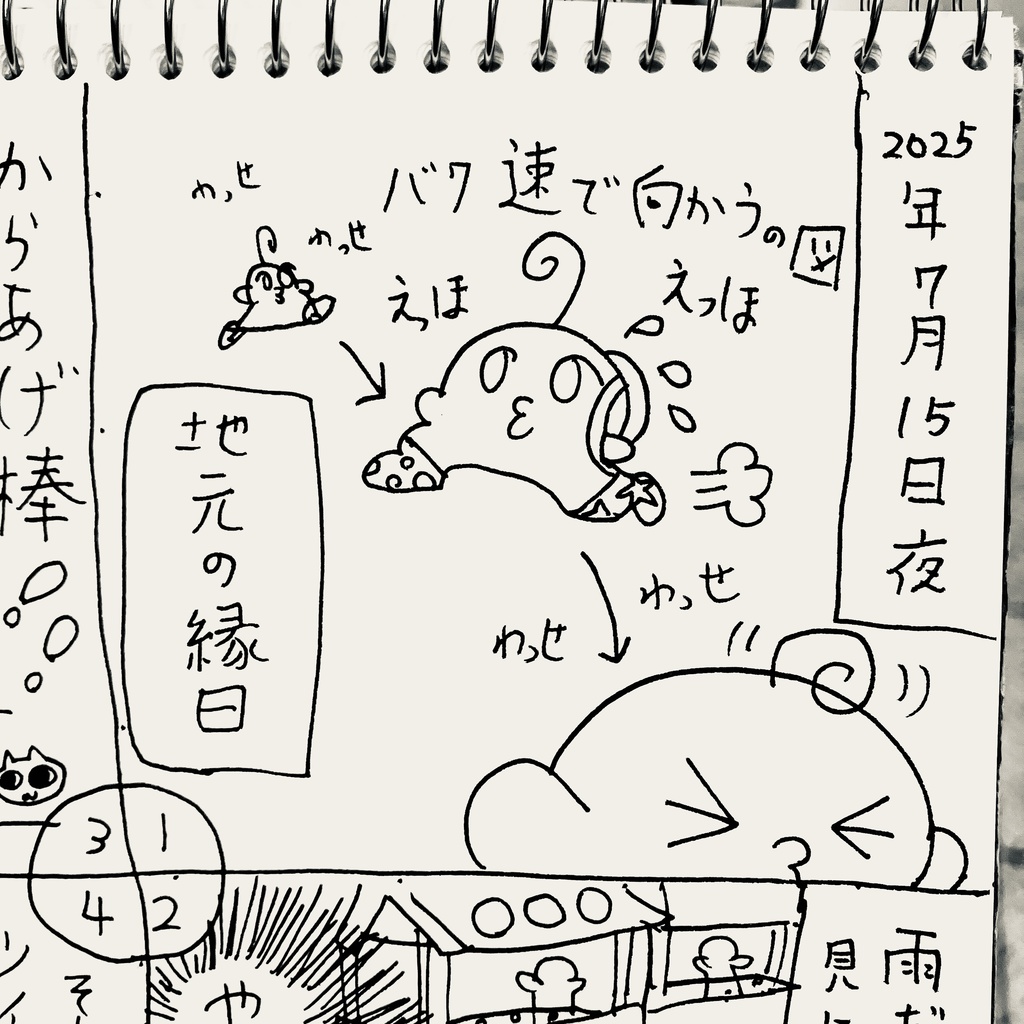 2025年7月15日夜
バク速で向かうの図
えっほ
えっほ
わっせ
わっせ
わっせ
わっせ
地元の縁日
からあげ棒
3 1
4 2
雨だ
見に
や
そ